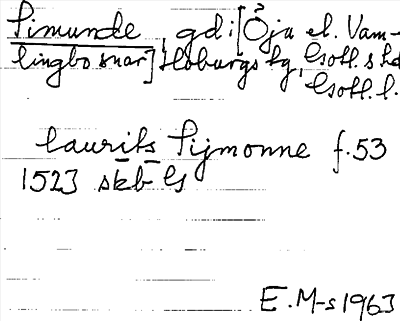 Simunde, gd i [Öja el. Vam-
lingbo snar] Hoburgs hg, Gotl. s hd
Gotl. l.
laurits Sijmonne f. 53
1523 skb G
E. M-s 1963